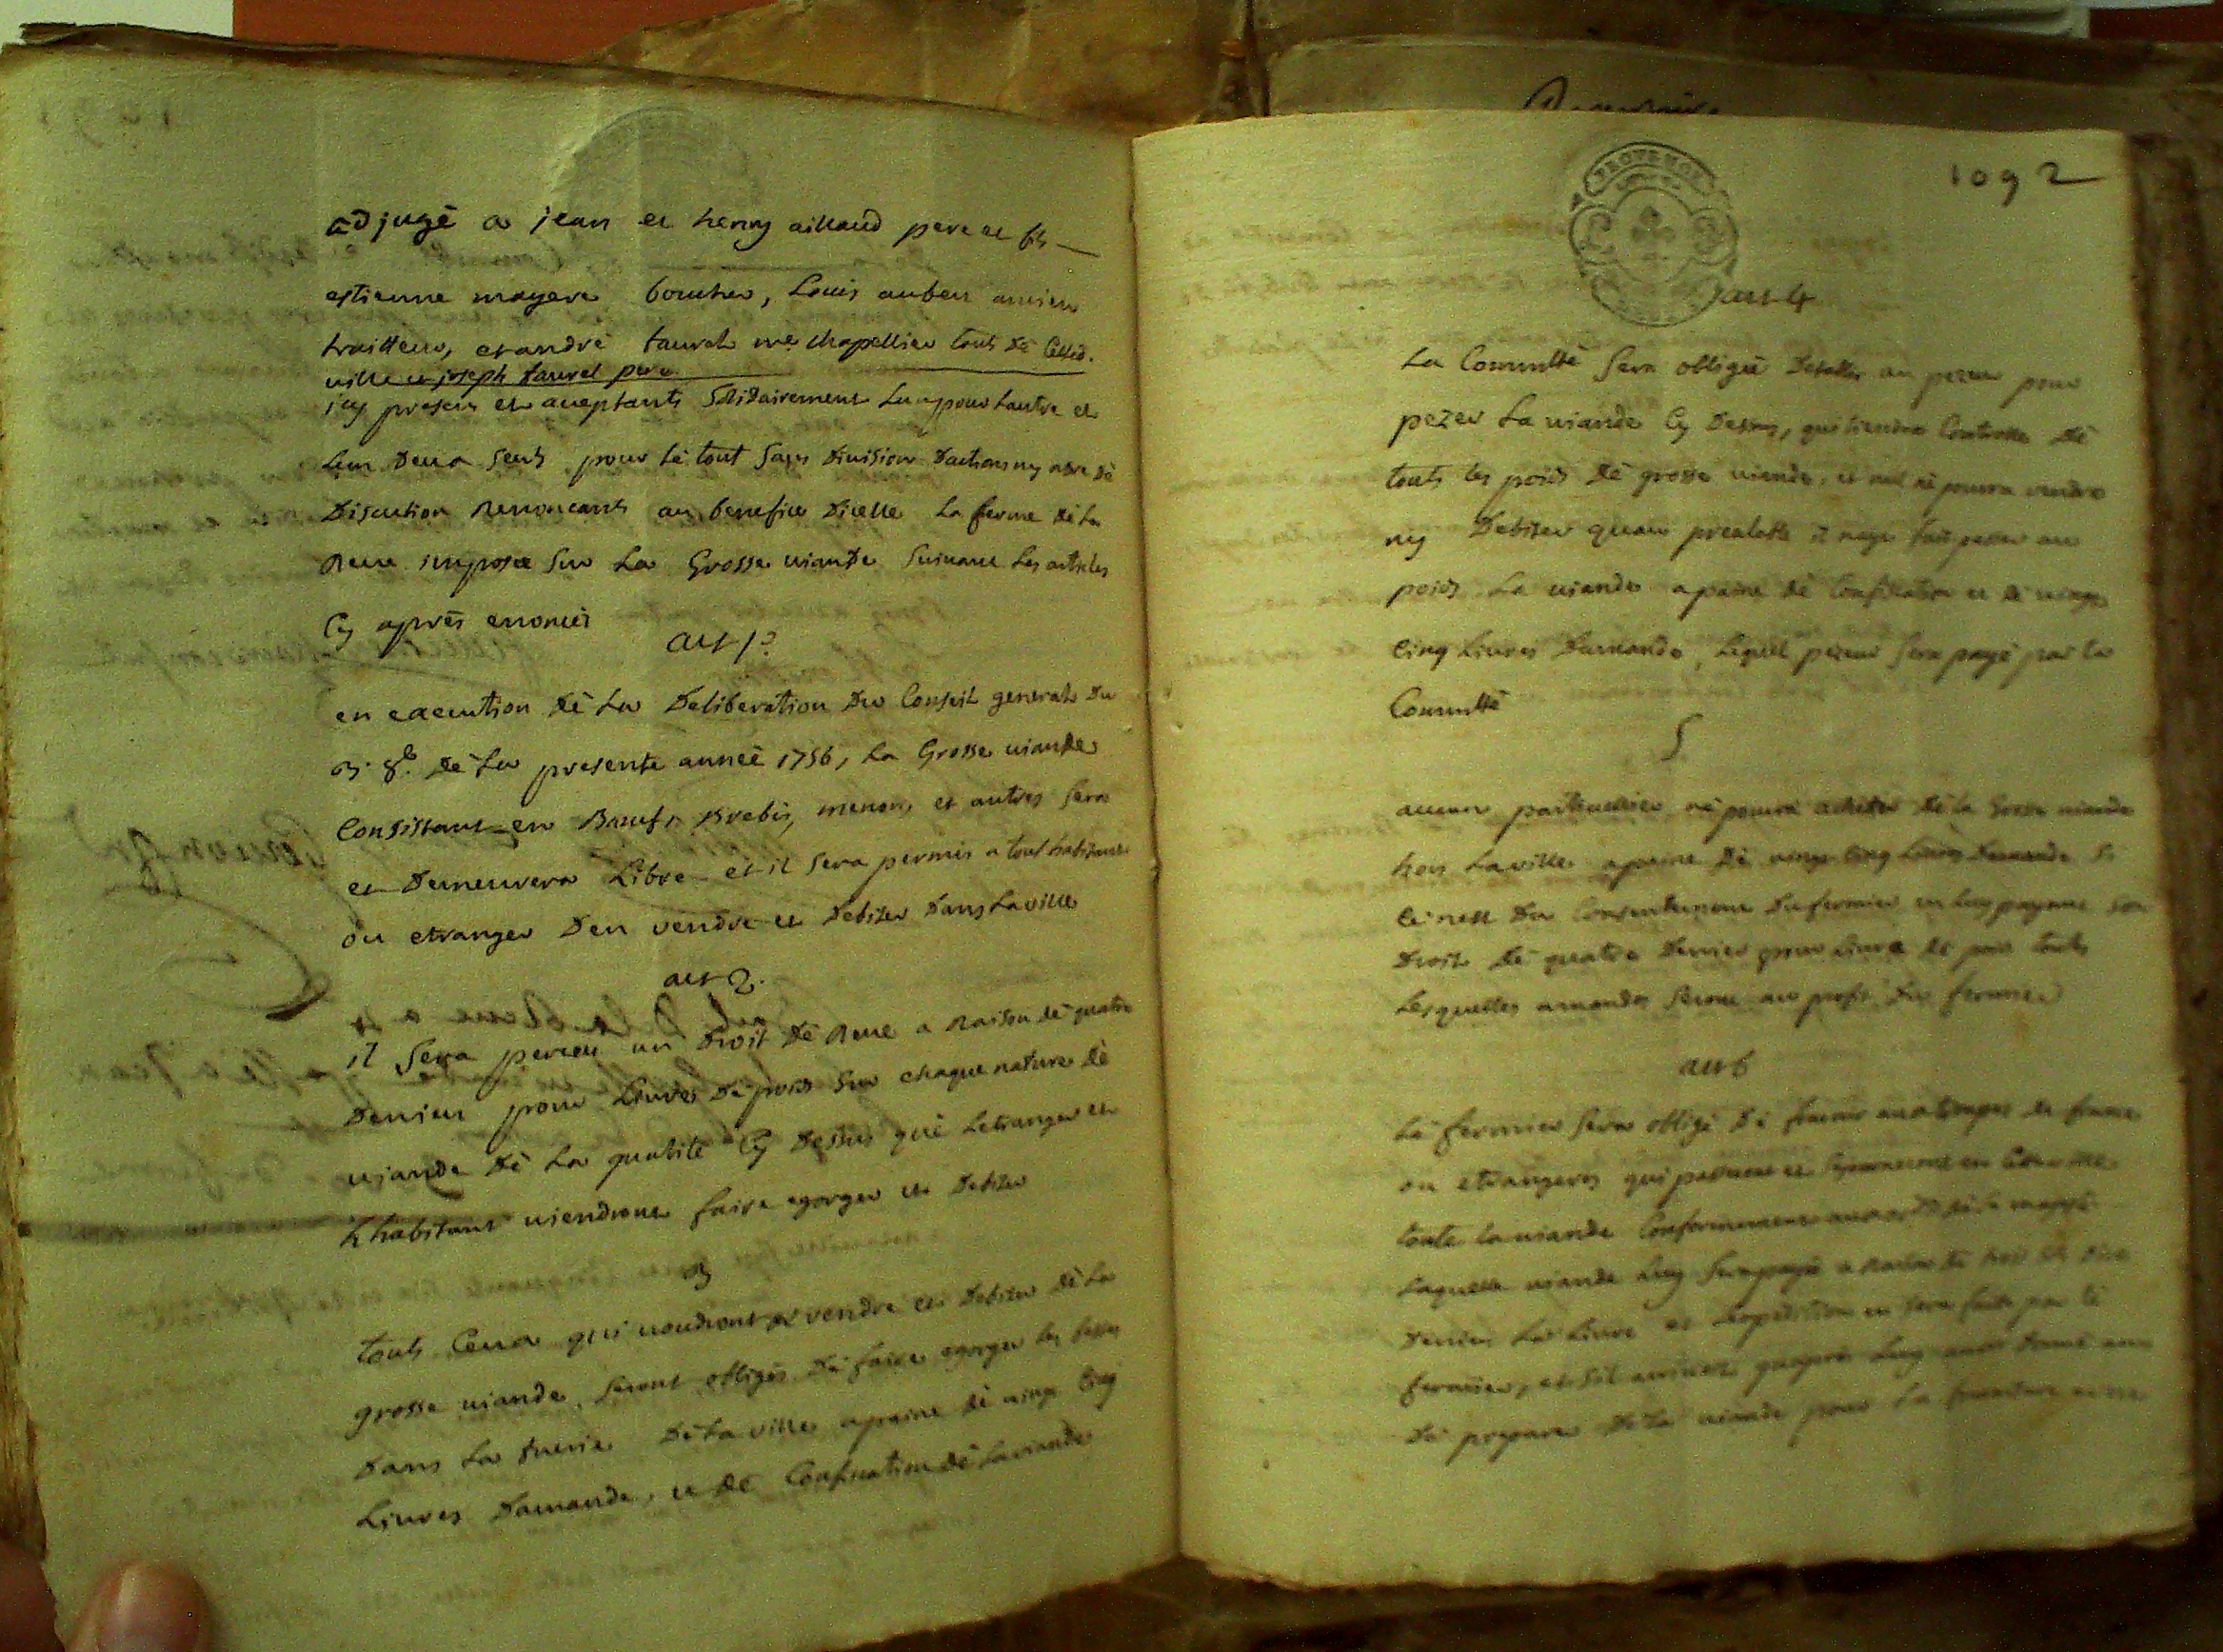 adjugé a jean et henry aillaud pere et fils
estienne mayere boucher, Louis aubert ancien
traitteur, et andré taurel me chapellier touts de cette
ville et joseph taurel pere
icy presens et aceptants solidairement Lun pour lautre et
Lun deux seuls pour le tout sans division dactions ny ordre de
discution Renoncants au benefice dicelle La ferme de La
Reve imposée sur La Grosse viande suivant Les articles
Cy aprés enoncés
art 1o
en execution dé La deliberation du Conseil general du
3. 8b. dé La presente année 1756, La Grosse viande
Consistant en Bœufs Brebis, menon, et autres sera
et demeurera Libre et il sera permis a tout habitant
ou etranger d'en vendre et debiter dans La ville
art 2.
il sera perceu un droit dé Reve a Raison dé quatre
deniers pour Livre dé poids sur chaque nature dé
viande dé La qualité Cy dessus qué Letranger et
Lhabitant viendront faire egorger et debiter
3
touts Ceux qui voudront vendre et debiter dé La
grosse viande seront obligés dé faire egorger les bestes
dans La tuerie dé La ville a paine dé vingt Cinq
Livres damande, et dé Confiscation dé La viande
PROVENCE
1092
art 4
La Commté sera obligée détablir un pezeur pour
pezer La viande Cy dessus, qui tiendra Controlle dé
touts les poids dé grosse viande, et nul né pourra vendre
ny debiter quau prealable il naye fait pezer au
poids La viande a paine dé Confiscation et dé vingt
Cinq Livres damande, Lequel pezeur sera payé par La
Commté
5
aucun particulier né pourra acheter dé La Grosse viande
hors La ville a paine dé vingt Cinq Livres damande si
Ce nest du Consentement du fermier en Luy payant son
droit dé quatre deniers pour Livre dé poids touts
Lesquelles amandes seront au profit du fermier
art 6
Lé fermier sera obligé dé fournir aux troupes dé france
ou etrangeres qui passeront et sejourneront en Cette ville
toute La viande Conformement aux
Laquelle viande Luy sera payée a Raison dé
deniers La Livre et Lexpedition en sera faite par Lé
fermier, et sil arrivet quaprés Luy avoir donné
dé preparer dé La viande pour La fourniture